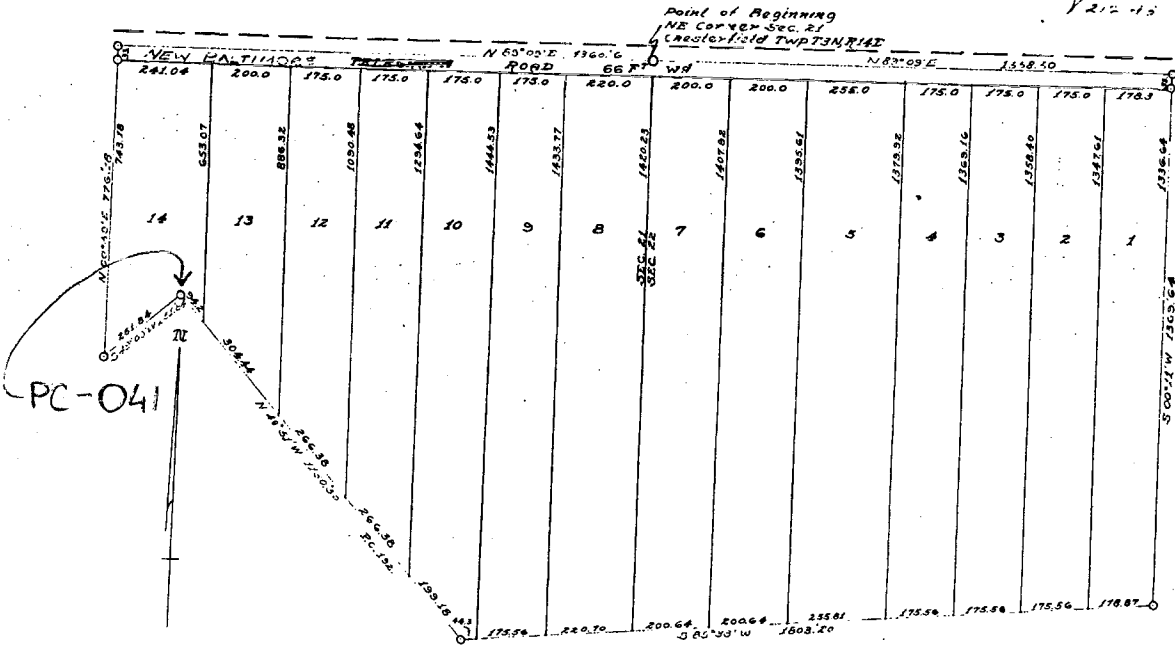 Point of Beginning
NE Corner Sec. 21
Chesterfield TWP T3N, R14E
NEW BALTIMORE ROAD 66 FT WD
N 89°09'E
241.04 200.0 175.0 175.0 175.0 175.0 220.0 200.0 200.0 255.0 175.0 175.0 175.0 178.3
743.18 653.07 886.32 1090.48 1294.64 1444.53 1433.77 1420.23 1407.92 1395.61 1379.92 1369.16 1358.40 1347.61 1336.64
14 13 12 11 10 9 8 7 6 5 4 3 2 1
SEC. 21
SEC. 22
S 00°12'W 1369.64
261.84
N
PC-041
304.44
266.38
266.38
P.C. 192
199.18
44.3
175.56 220.70 200.64 200.64 255.81 175.56 175.56 175.56 178.87